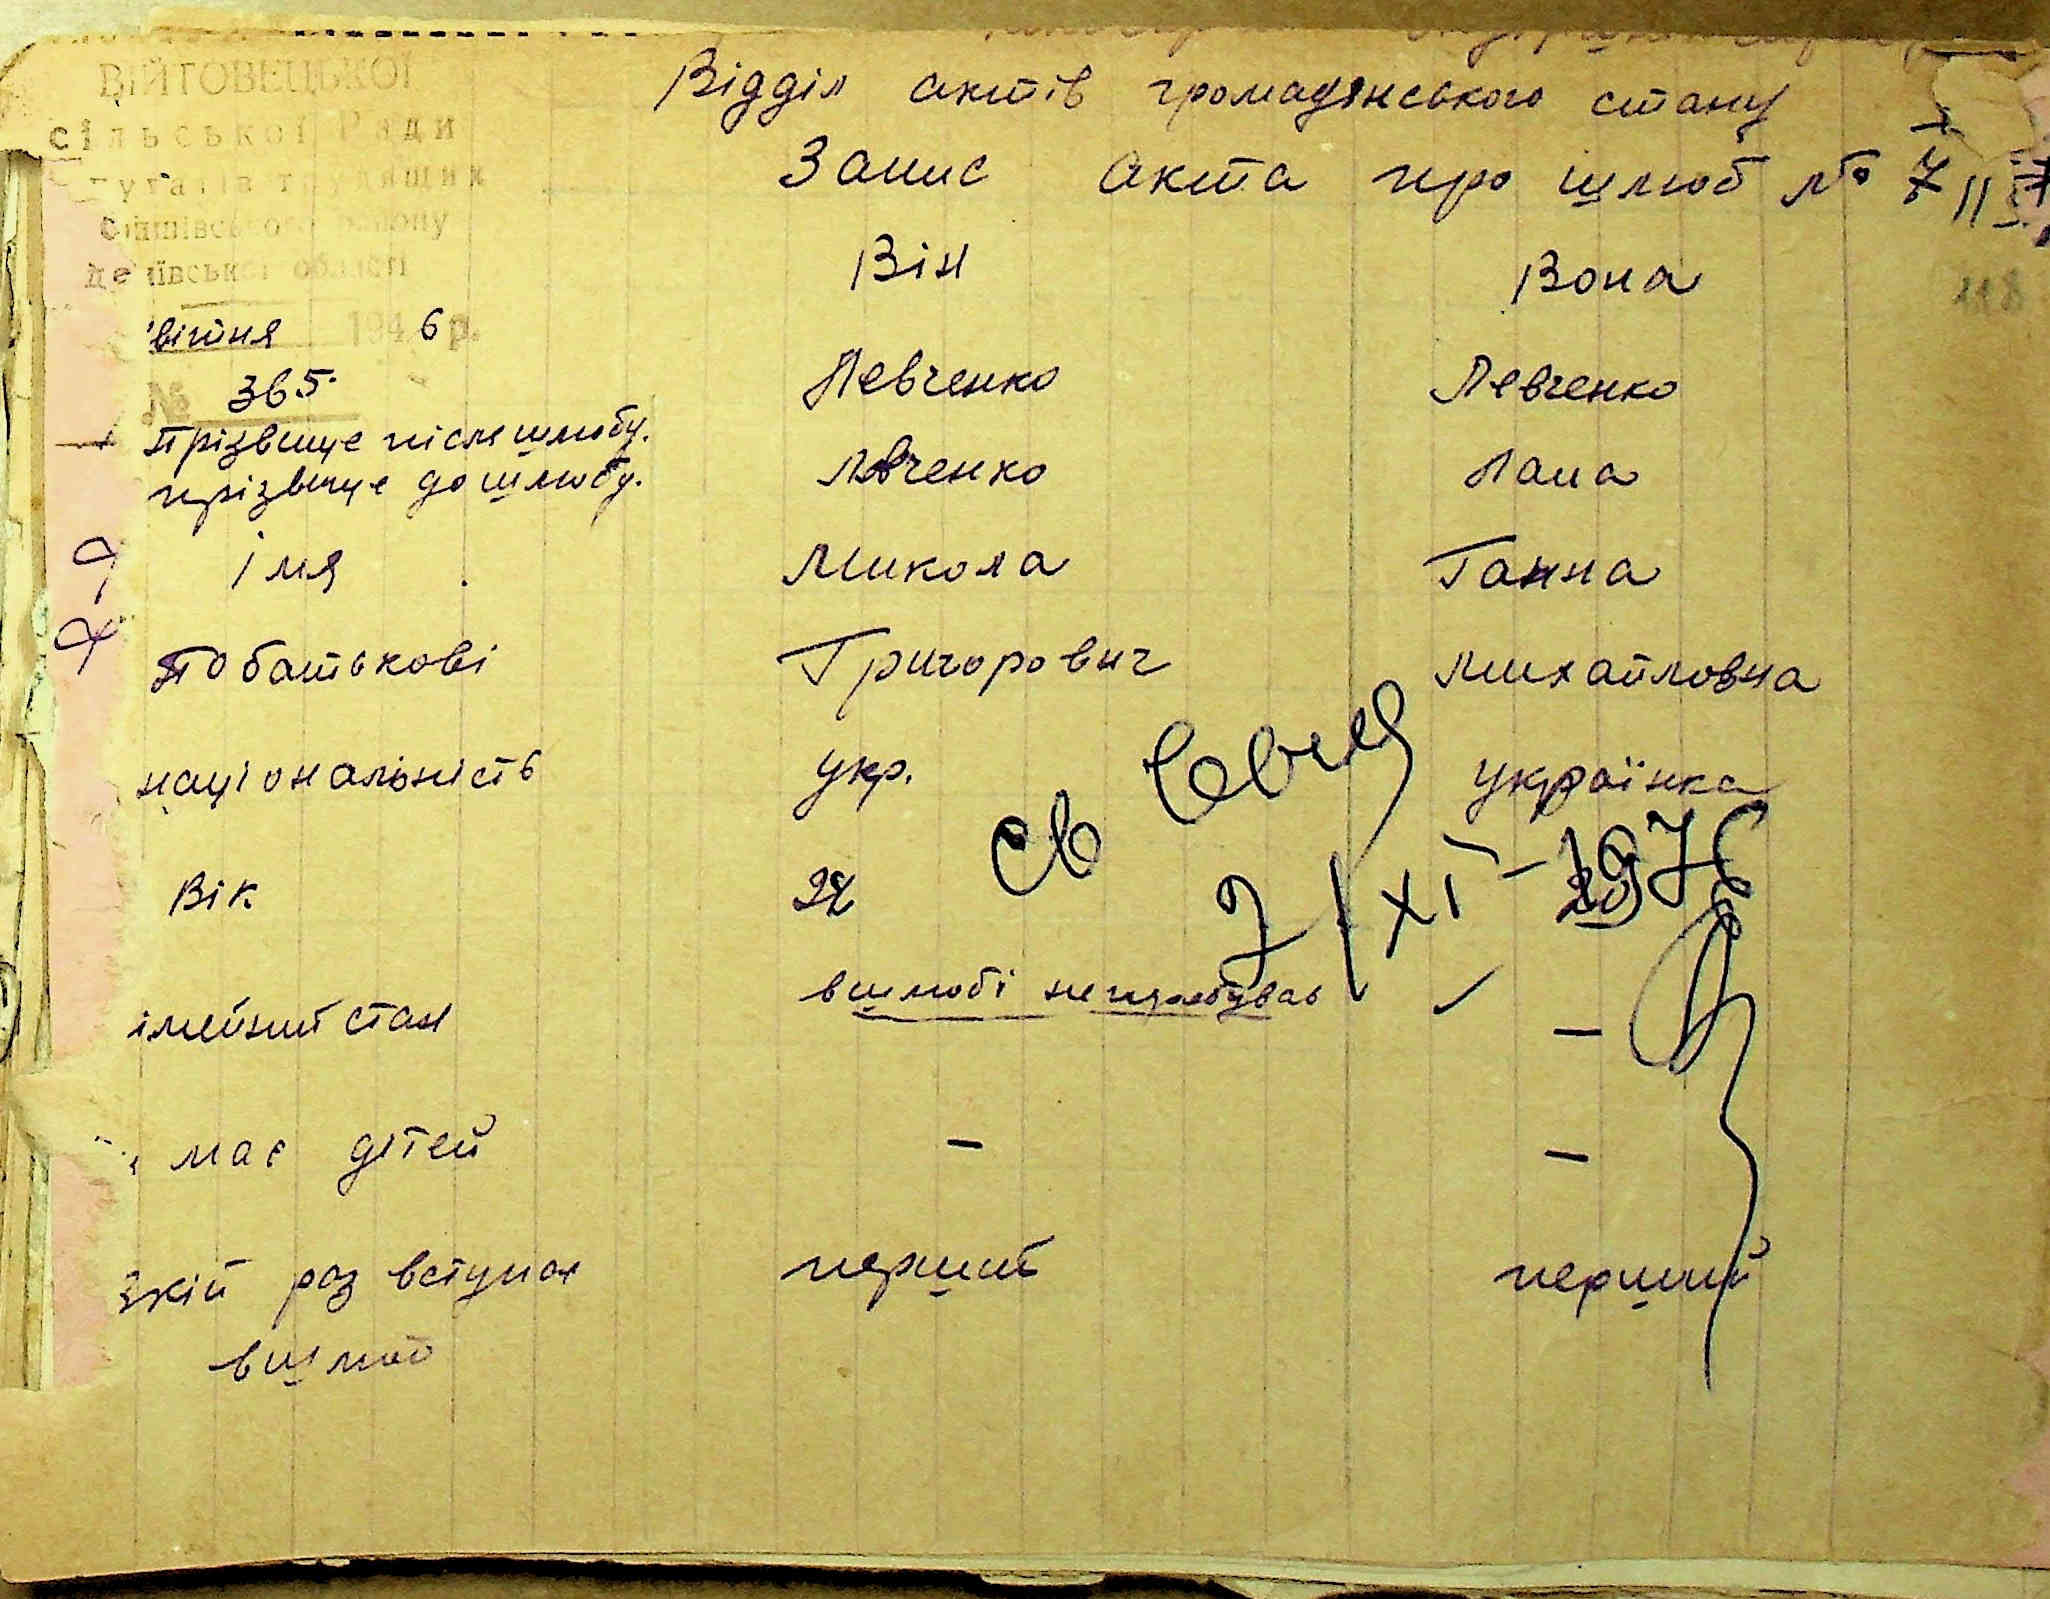 ВІЙТОВЕЦЬКОЇ
сільської Ради
трудящих
району
області
Відділ актів громадянського стану
Запис акта про шлюб № 7
Він Вона
118
вітня 1946 р.
№ 365.
Прізвище після шлюбу. Левченко Левченко
прізвище до шлюбу. Левченко Папа
імя Микола Ганна
По батькові Григорович Михайловна
національність укр. українка
Вік 22
7/XI-1976
імейний стан в шлюбі не перебував —
має дітей — —
який раз вступає перший перший
в шлюб